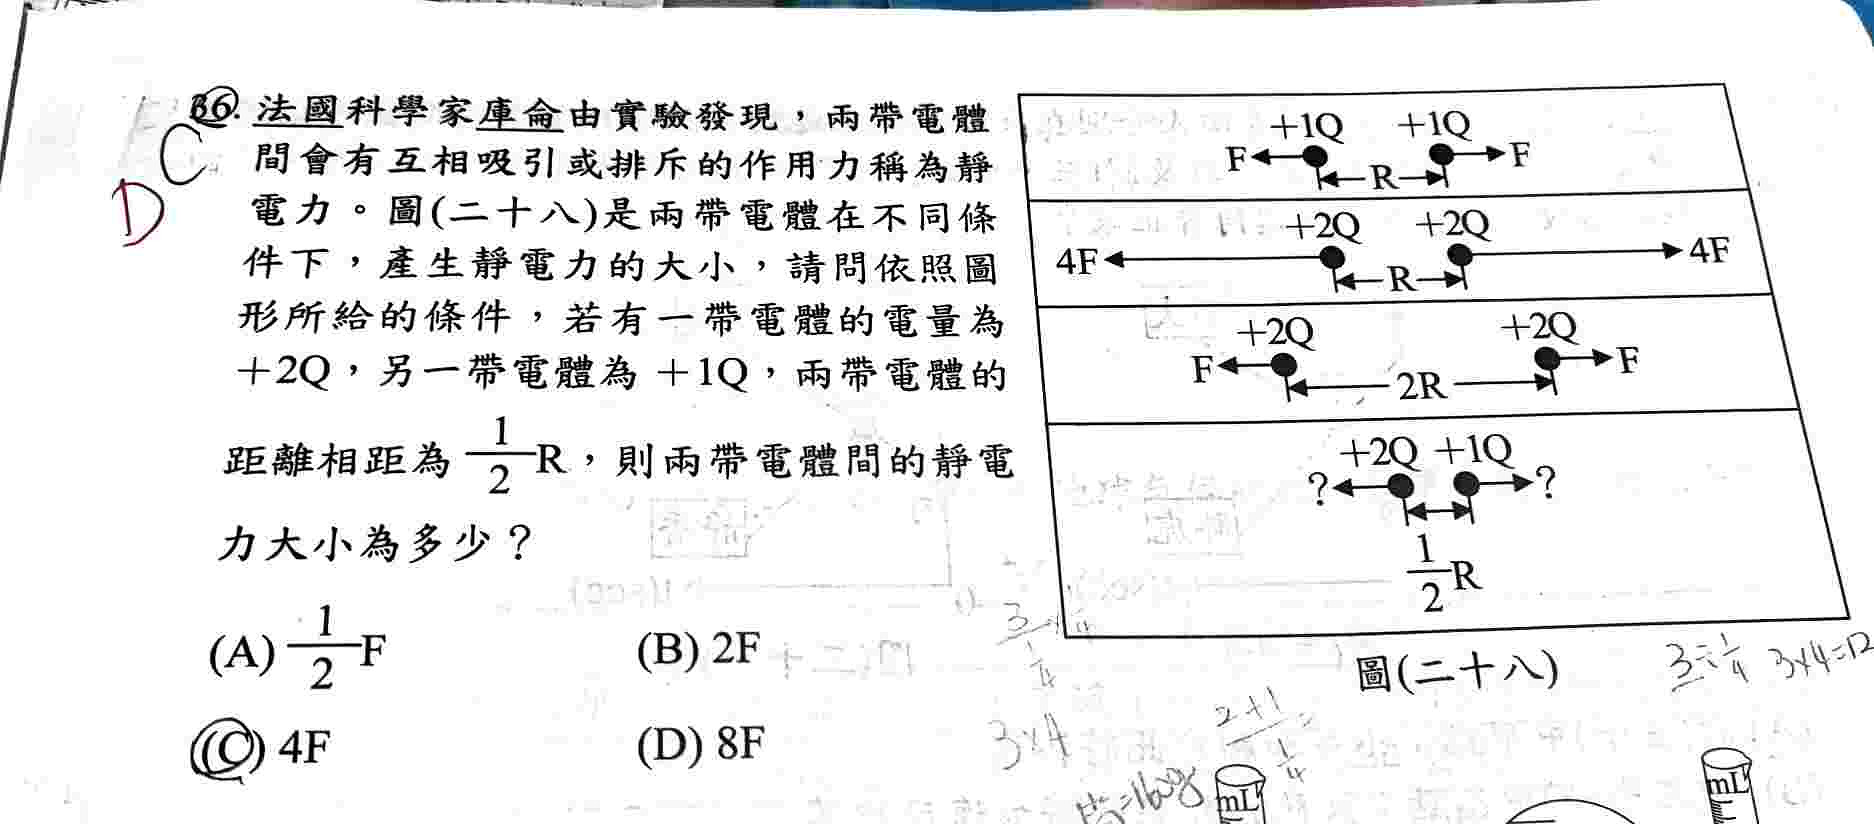 36. 法國科學家庫侖由實驗發現，兩帶電體
C
間會有互相吸引或排斥的作用力稱為靜
D
電力。圖(二十八)是兩帶電體在不同條
件下，產生靜電力的大小，請問依照圖
形所給的條件，若有一帶電體的電量為
+2Q，另一帶電體為 +1Q，兩帶電體的
距離相距為 1/2 R，則兩帶電體間的靜電
力大小為多少？
(A) 1/2 F
(B) 2F
(C) 4F
(D) 8F
+1Q +1Q
F F
R
+2Q +2Q
4F 4F
R
+2Q +2Q
F F
2R
+2Q +1Q
? ?
1/2 R
圖(二十八)
3÷1/4 3×4=12
3×4
2+1
1/4
mL
mL